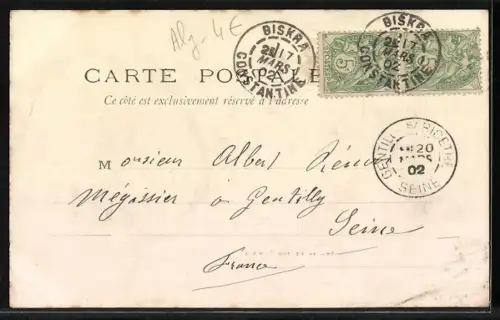 Alg. 4E
BISKRA
2E/17
MARS
02
CONSTANTINE
BISKRA
2E/17
MARS
02
CONSTANTINE
5
CARTE POSTALE
Ce côté est exclusivement réservé à l'adresse
GENTILLY
20
MARS
02
SEINE
Monsieur Albert
Mégissier à Gentilly
Seine
France